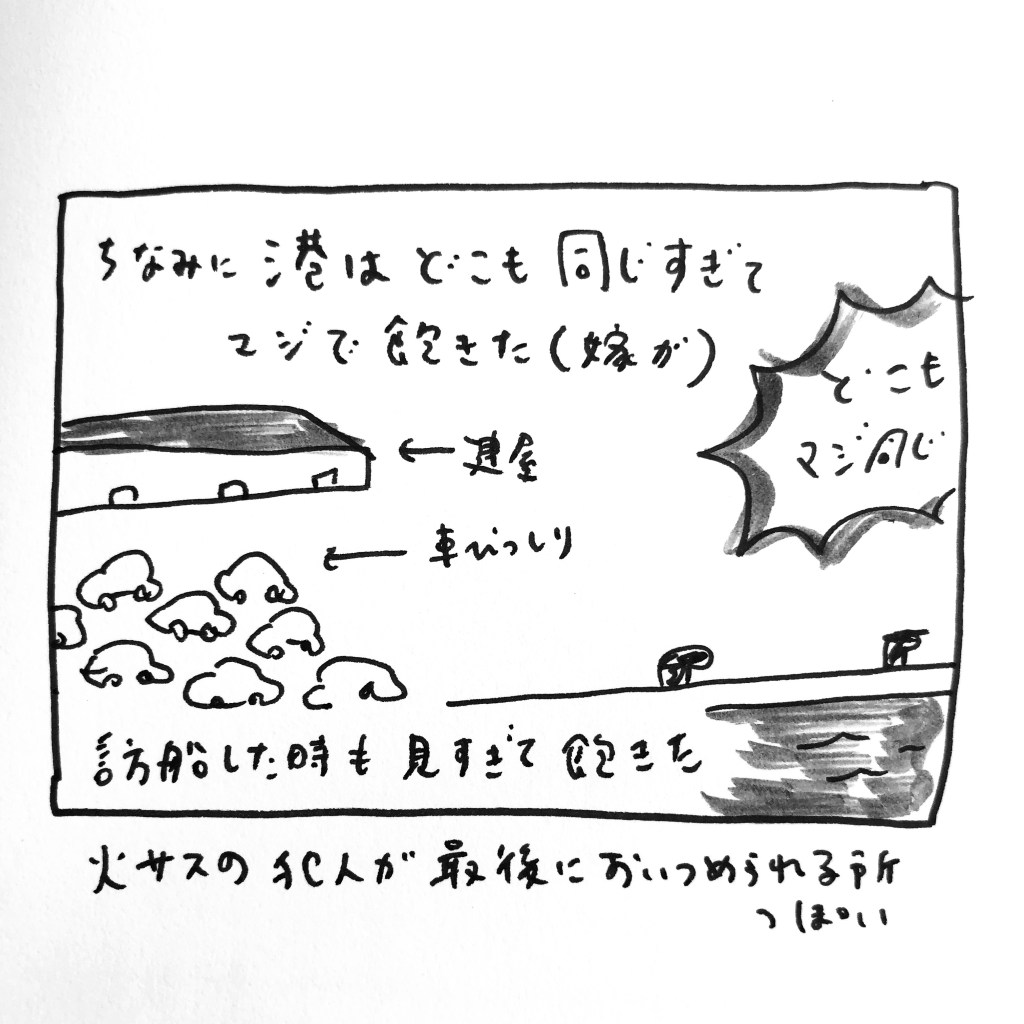 ちなみに 港は どこも 同じすぎて
マジで 飽きた(嫁が)
どこも
マジ同じ
←建屋
←車びっしり
訪船した時も 見すぎて 飽きた
火サスの 犯人が 最後に おいつめられる所
っぽい